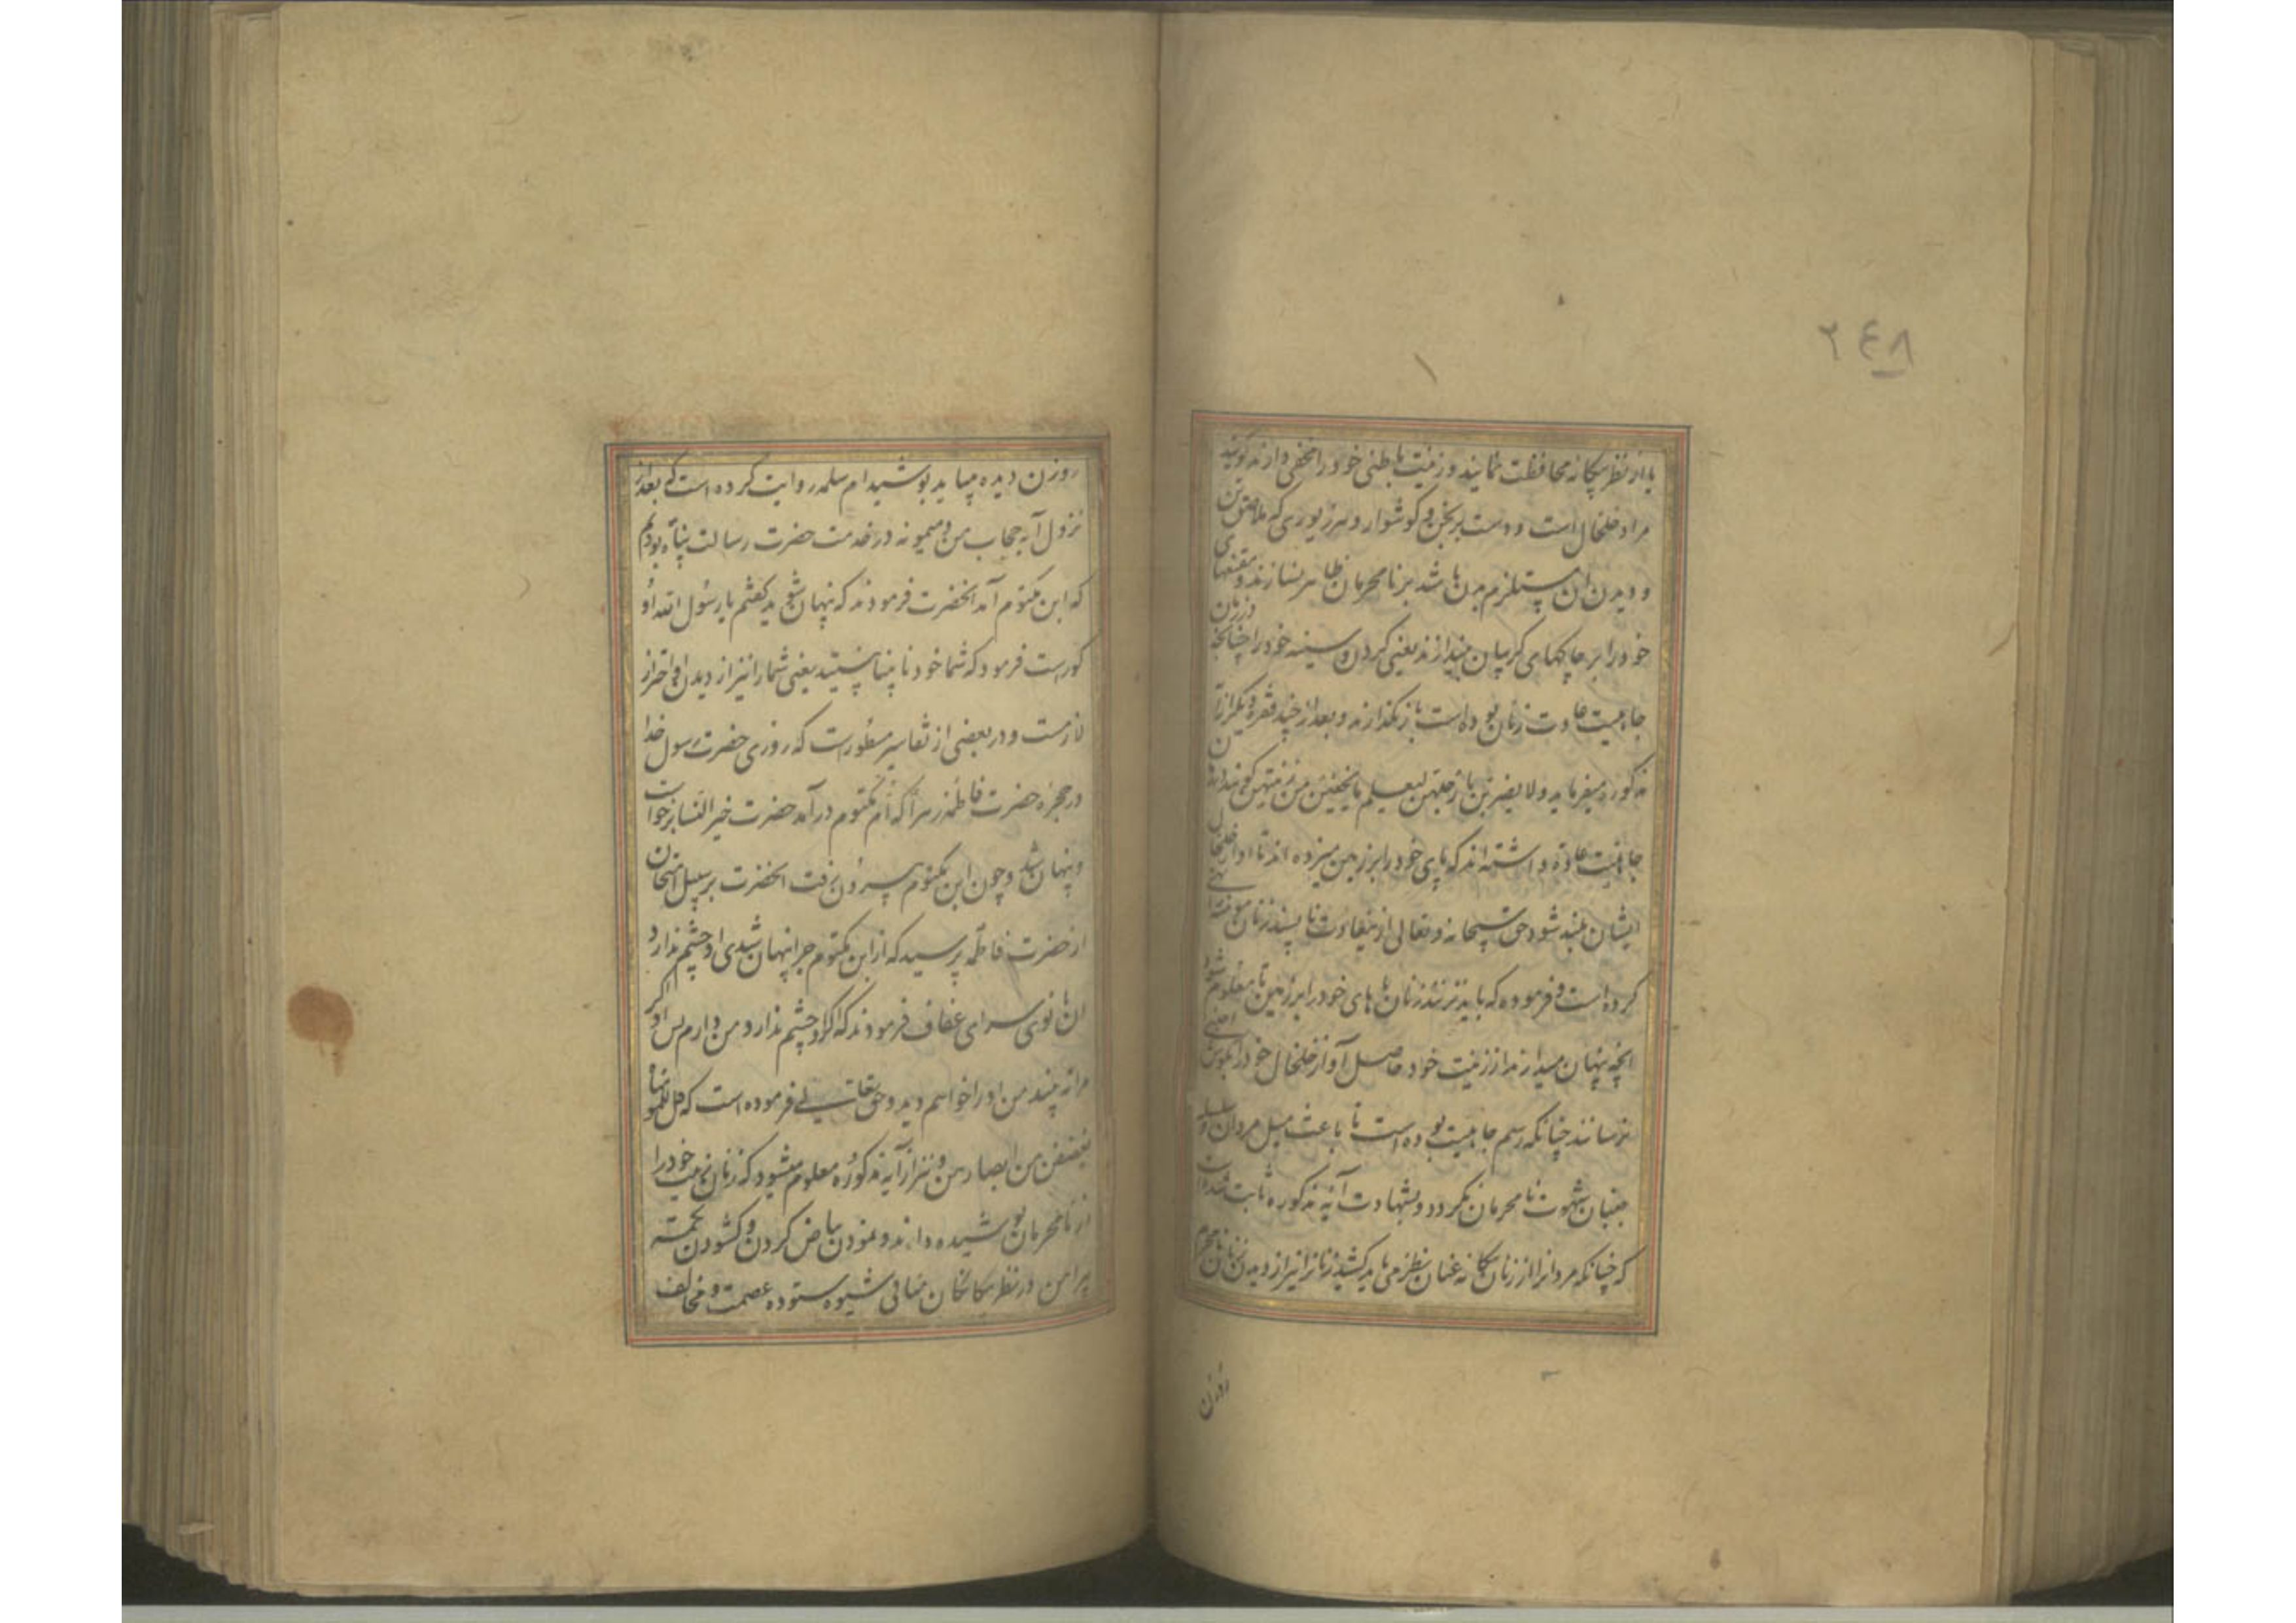 ۲۴۸
یا از نظر بیگانه محافظت نمایند و زینت باطنی خود را مخفی دارند گویند
مراد خلخال است و دست برنجن و گوشوار و هر زیوری که ملاصق بدن
و دیدن آن مستلزم بدن باشد بر نامحرمان ظاهر نسازند و مقنعهای
خود را بر چاکهای گریبان میندازند یعنی گردن و سینه خود را چنانچه در زمان
جاهلیت عادت زنان بوده است باز نگذارند و بعد از چند فقره دیگر از آن
مذکوره میفرماید ولا یضربن بارجلهن لیعلم ما یخفین من زینتهن
جاهلیت عادة داشته اند که پای خود را بر زمین میزده اند تا آواز خلخال
ایشان بلند شود حق سبحانه و تعالی از عادت ناپسند زنان مؤمنه را نهی
کرده است و فرموده که باید نزنند زنان پاهای خود را بر زمین تا معلوم شود
آنچه پنهان میدارند از زینت خود حاصل آواز خلخال خود را بگوش اجنبی
نرسانند چنانکه رسم جاهلیت بوده است تا باعث میل مردان و سلسله
جنبان شهوت نامحرمان نگردد و بشهادت آیه مذکوره ثابت شد
که چنانکه مردانرا از زنان بیگانه عنان نظر می باید کشید زنانرا نیز از دیدن نامحرم
روزن
روزن دیده میباید پوشید ام سلمه روایت کرده است که بعد از
نزول آیه حجاب من و میمونه در خدمت حضرت رسالت پناه بودیم
که ابن مکتوم آمد آنحضرت فرمودند که پنهان شوید گفتم یا رسول الله او
کورست فرمود که شما خود نابینا نیستید یعنی شما را نیز از دیدن او احتراز
لازمست و در بعضی از تفاسیر مسطورست که روزی حضرت رسول خدا
در حجره حضرت فاطمه زهرا که ام مکتوم درآمد حضرت خیر النسا برخواست
و پنهان شد و چون ابن مکتوم بیرون رفت آنحضرت بر سبیل امتحان
از حضرت فاطمه پرسید که از ابن مکتوم چرا پنهان شدی او چشم ندارد
آن بانوی سرای عفاف فرمودند که اگر او چشم ندارد من دارم پس اگر او
مرا نه بیند من او را خواهم دید و حق تعالی فرموده است که قل للمؤمنات
یغضضن من ابصارهن و نیز از آیه مذکوره معلوم میشود که زنان زینت خود را
از نامحرمان پوشیده دارند و نمودن بیاض گردن و گشودن تکمه
پیراهن در نظر بیگانگان منافی شیوه ستوده عصمت و مخالف